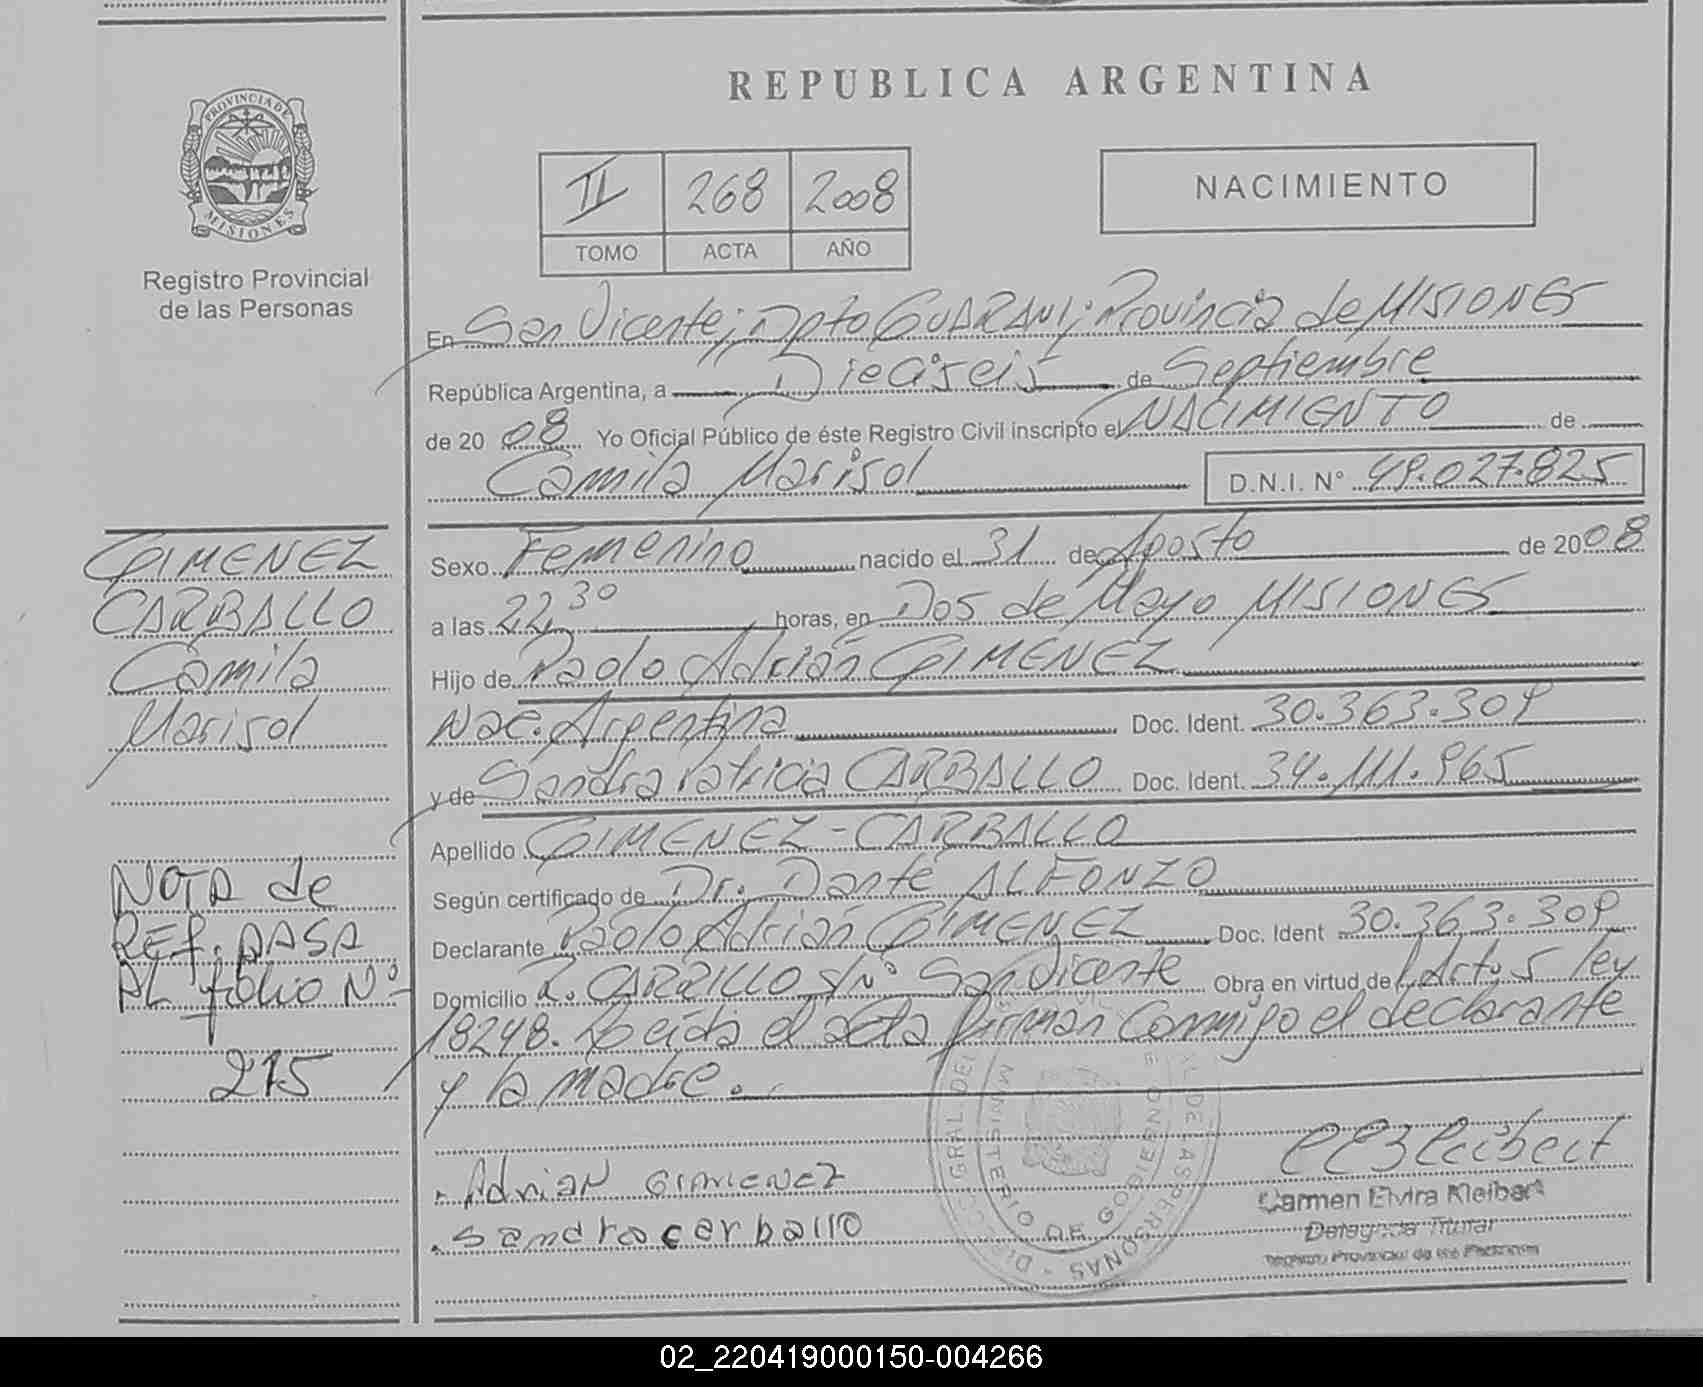 REPUBLICA ARGENTINA
PROVINCIA DE
MISIONES
Registro Provincial
de las Personas
II 268 2008
TOMO ACTA AÑO
NACIMIENTO
En San Vicente; Dpto GUARANI; Provincia de MISIONES
República Argentina, a Dieciseis de Septiembre
de 20 08 Yo Oficial Público de éste Registro Civil inscripto el NACIMIENTO de
Camila Marisol D.N.I. N° 49.027.825
Sexo Femenino nacido el 31 de Agosto de 20 08
a las 22,30 horas, en Dos de Mayo MISIONES
Hijo de Paolo Adrián GIMENEZ
Nac. Argentina Doc. Ident. 30.363.309
y de Sandra Patricia CARBALLO Doc. Ident. 34.111.965
Apellido GIMENEZ-CARBALLO
Según certificado de Dr. Dante ALFONZO
Declarante Paolo Adrián GIMENEZ Doc. Ident 30.363.309
Domicilio R. CARRILLO s/n° San Vicente Obra en virtud del Arto. 5 ley
18248. Leída el acta firman conmigo el declarante
y la madre.
Adrian GIMENEZ
Sandra carballo
Carmen Elvira Kleibert
Delegada Titular
Registro Provincial de las Personas
MINISTERIO DE GOBIERNO
DE LAS PERSONAS
GIMENEZ
CARBALLO
Camila
Marisol
NOTA de
REF. PASA
AL folio N°
215
02_220419000150-004266